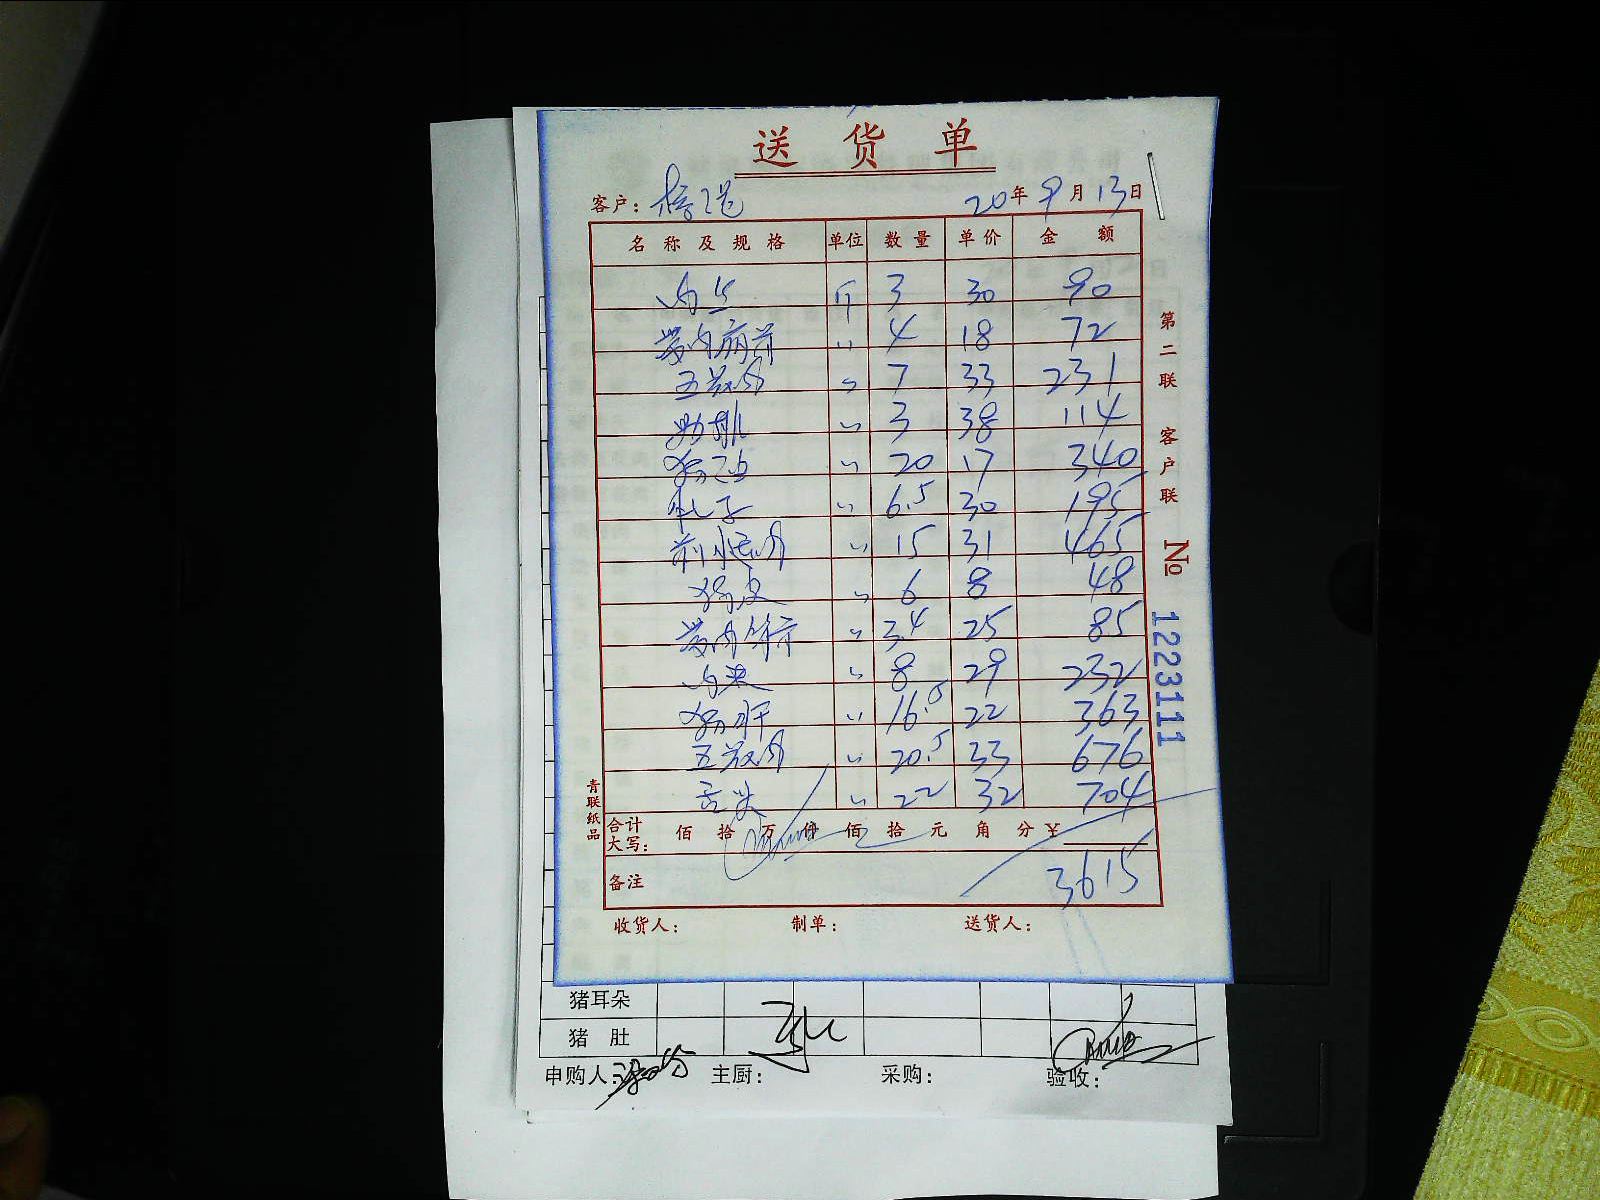 送货单
客户： 20年9月13日
名称及规格 单位 数量 单价 金额
肉丝 斤 3 30 90
带肉 〃 4 18 72
五花肉 〃 7 33 231
肋排 〃 3 38 114
猪 〃 20 17 340
子 〃 6.5 30 195
前腿肉 〃 15 31 465
猪皮 〃 6 8 48
带肉 〃 3.4 25 85
肉 〃 8 29 232
猪肝 〃 16.5 22 363
五花肉 〃 20.5 33 676
舌头 〃 22 32 704
合计大写： 佰 拾 万 仟 佰 拾 元 角 分 ¥
备注 3615
收货人： 制单： 送货人：
第二联 客户联 No 1223111
青联纸品
猪耳朵
猪肚
申购人： 主厨： 采购： 验收：